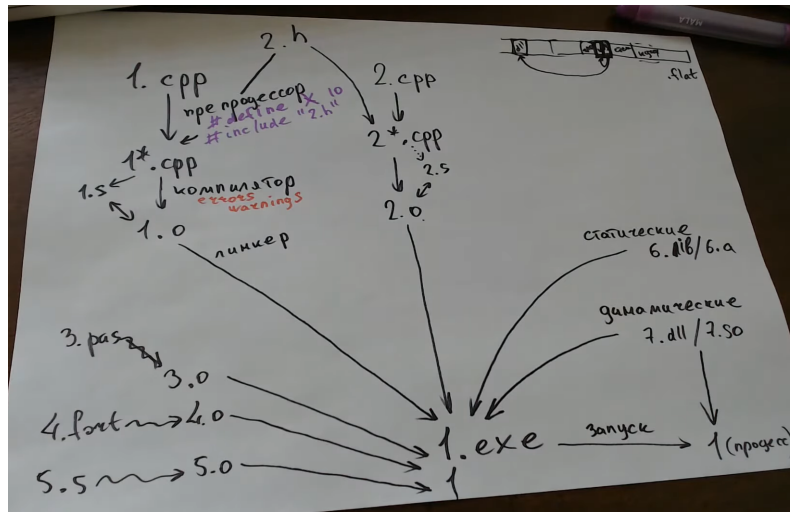 2.h
1.cpp
препроцессор
#define X 10
#include "2.h"
2.cpp
.flat
1*.cpp
2*.cpp
1.s
компилятор
errors
warnings
2.s
1.o
2.o
линкер
статические
6.lib/6.a
динамические
7.dll/7.so
3.pas
3.o
4.fort
4.o
5.s
5.o
1.exe
1
запуск
1 (процесс)